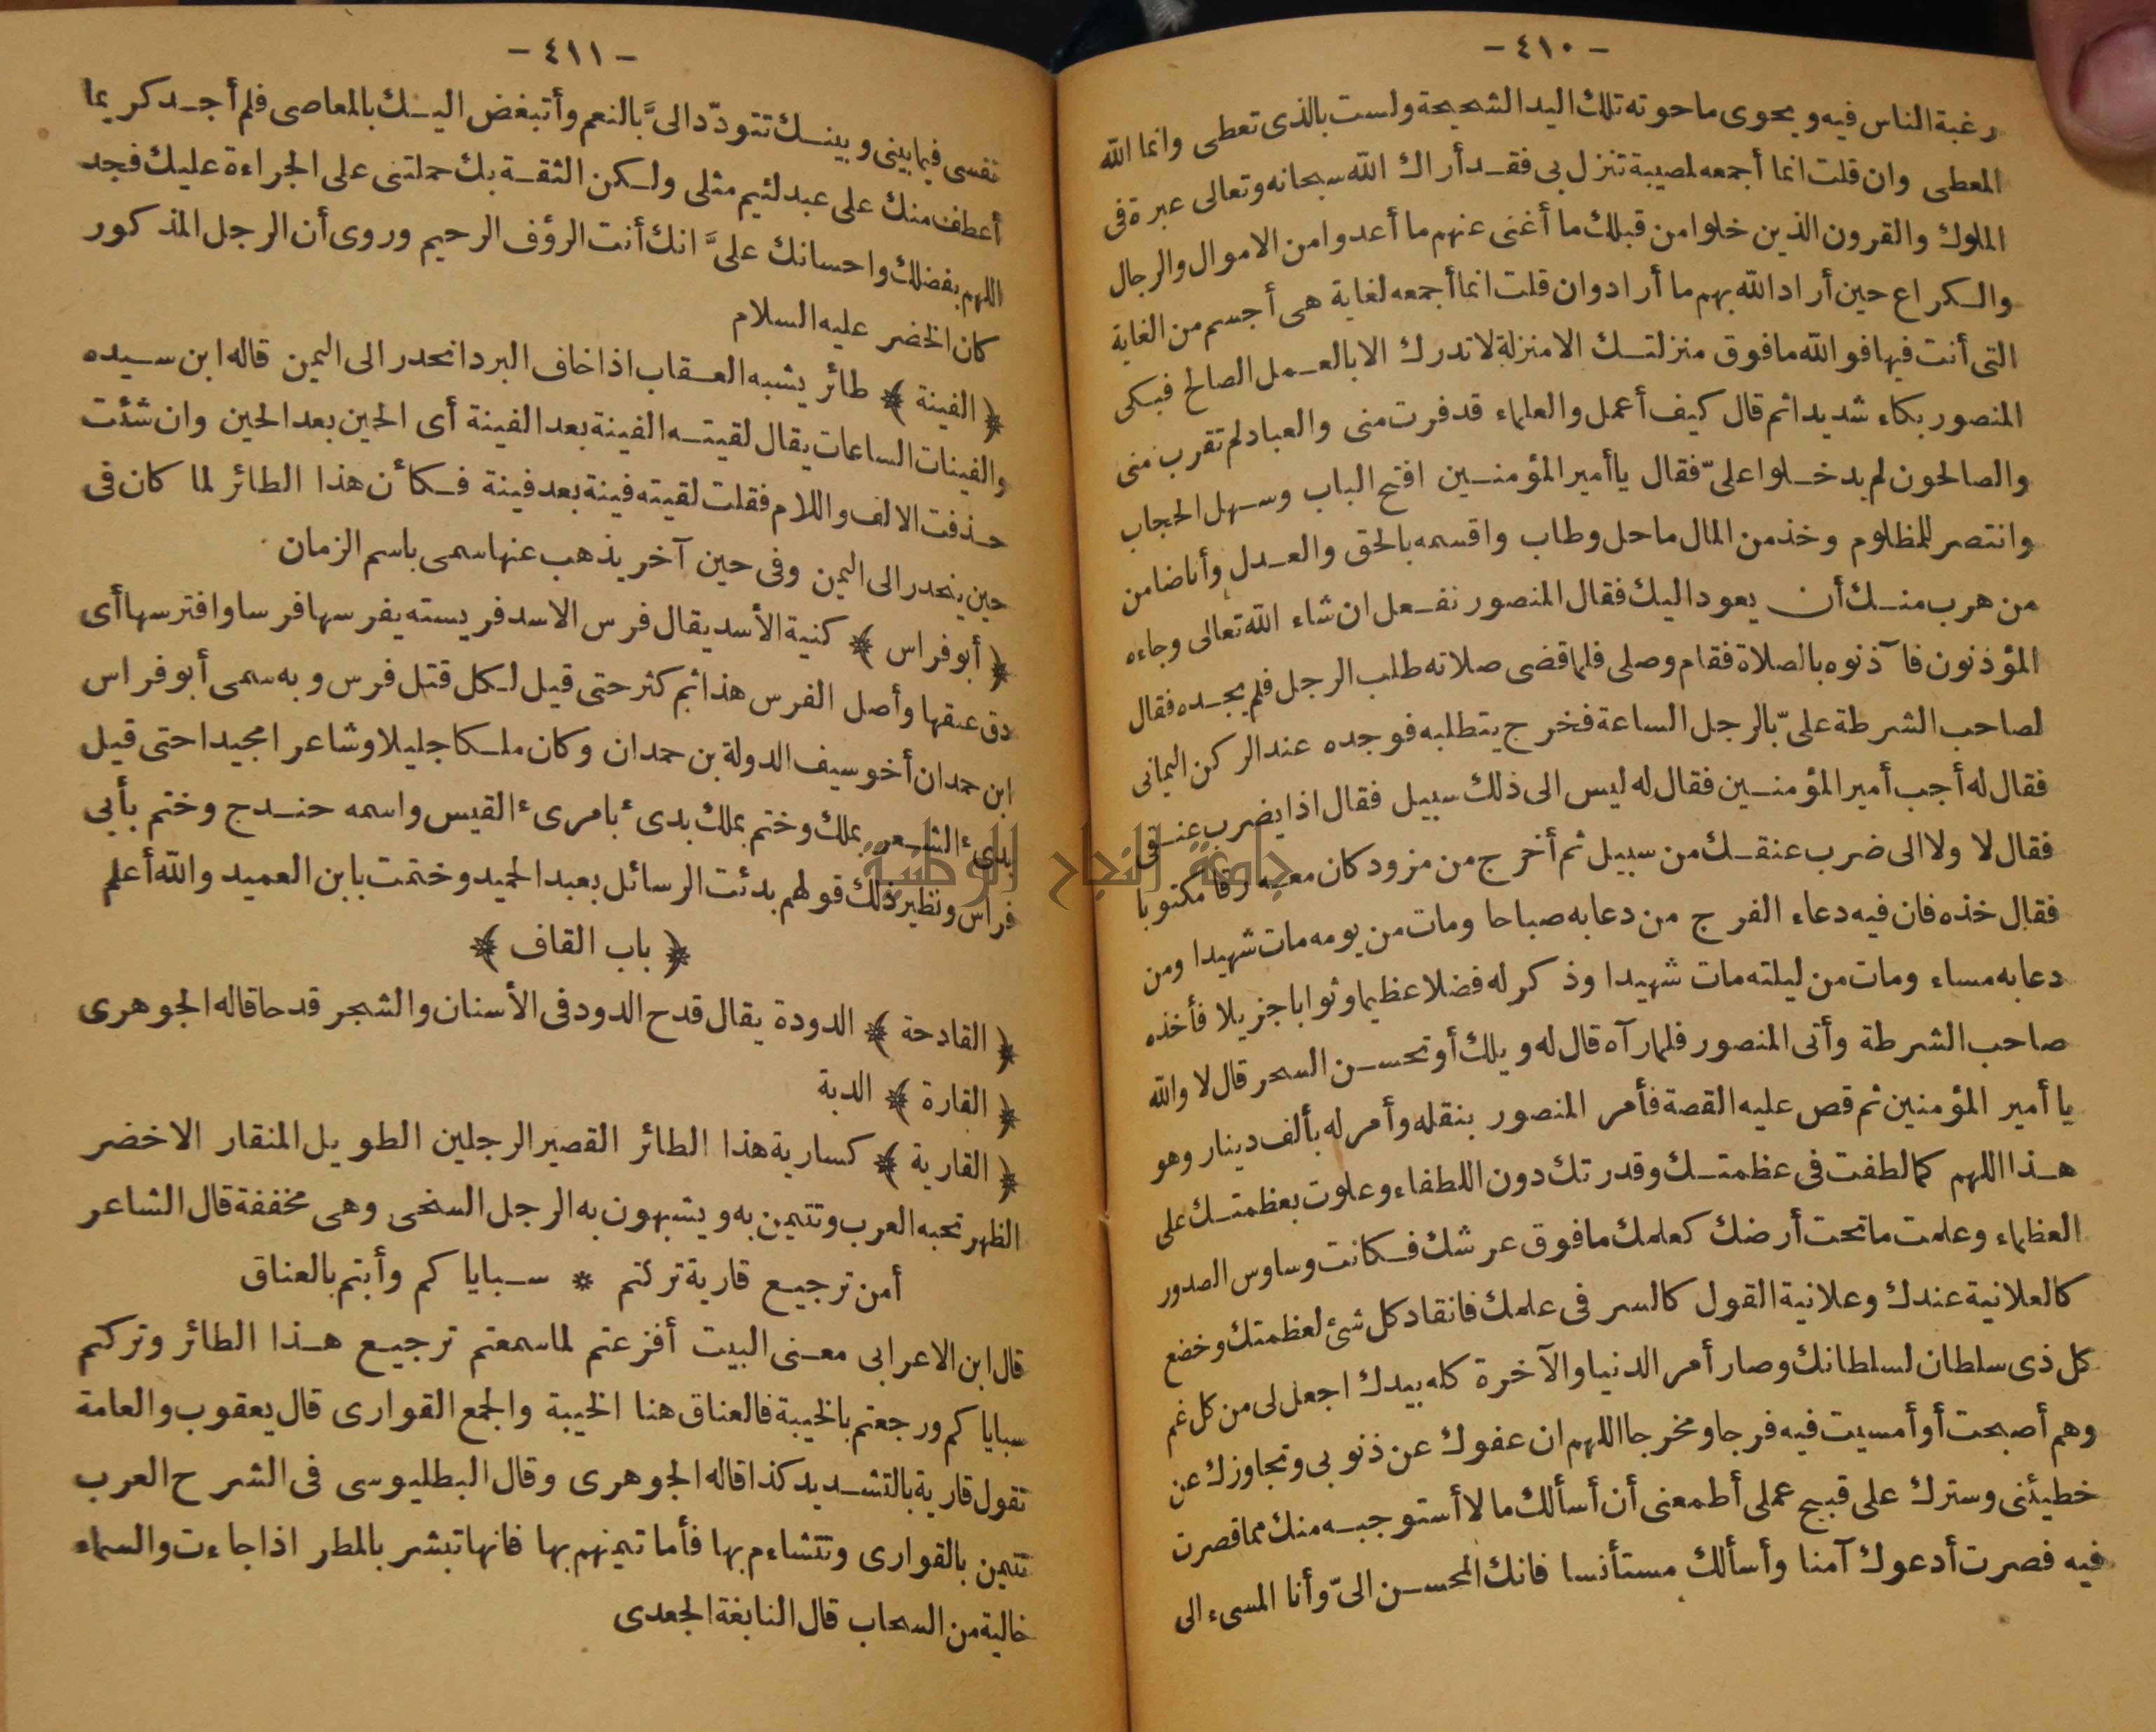 - ٤١٠ -
رغبة الناس فيه ويحوى ما حوته تلك اليد الشحيحة ولست بالذى تعطى وانما الله
المعطى وان قلت انما أجمعه لمصيبة تنزل بى فقد أراك الله سبحانه وتعالى عبرة فى
الملوك والقرون الذين خلوا من قبلك ما أغنى عنهم ما أعدوا من الاموال والرجال
والكراع حين أراد الله بهم ما أراد وان قلت انما أجمعه لغاية هى أجسم من الغاية
التى أنت فيها فوالله ما فوق منزلتك الا منزلة لا تدرك الا بالعمل الصالح فبكى
المنصور بكاء شديدا ثم قال كيف أعمل والعلماء قد فرت منى والعباد لم تقرب منى
والصالحون لم يدخلوا علىّ فقال يا أمير المؤمنين افتح الباب وسهل الحجاب
وانتصر للمظلوم وخذ من المال ما حل وطاب واقسمه بالحق والعدل وأنا ضامن
من هرب منك أن يعود اليك فقال المنصور نفعل ان شاء الله تعالى وجاءه
المؤذنون فآذنوه بالصلاة فقام وصلى فلما قضى صلاته طلب الرجل فلم يجده فقال
لصاحب الشرطة علىّ بالرجل الساعة فخرج يتطلبه فوجده عند الركن اليمانى
فقال له أجب أمير المؤمنين فقال له ليس الى ذلك سبيل فقال اذا يضرب عنقى
فقال لا ولا الى ضرب عنقك من سبيل ثم أخرج من مزود كان معه رقا مكتوبا
فقال خذه فان فيه دعاء الفرج من دعا به صباحا ومات من يومه مات شهيدا ومن
دعا به مساء ومات من ليلته مات شهيدا وذكر له فضلا عظيما وثوابا جزيلا فأخذه
صاحب الشرطة وأتى المنصور فلما رآه قال له ويلك أو تحسن السحر قال لا والله
يا أمير المؤمنين ثم قص عليه القصة فأمر المنصور بنقله وأمر له بألف دينار وهو
هذا اللهم كما لطفت فى عظمتك وقدرتك دون اللطفاء وعلوت بعظمتك على
العظماء وعلمت ما تحت أرضك كعلمك ما فوق عرشك فكانت وساوس الصدور
كالعلانية عندك وعلانية القول كالسر فى علمك فانقاد كل شئ لعظمتك وخضع
كل ذى سلطان لسلطانك وصار أمر الدنيا والآخرة كله بيدك اجعل لى من كل غم
وهم أصبحت أو أمسيت فيه فرجا ومخرجا اللهم ان عفوك عن ذنوبى وتجاوزك عن
خطيئتى وسترك على قبيح عملى أطمعنى أن أسألك ما لا أستوجبه منك مما قصرت
فيه فصرت أدعوك آمنا وأسألك مستأنسا فانك المحسن الىّ وأنا المسىء الى
- ٤١١ -
نفسى فيما بينى وبينك تتودّد الىَّ بالنعم وأتبغض اليك بالمعاصى فلم أجد كريما
أعطف منك على عبد لئيم مثلى ولكن الثقة بك حملتنى على الجراءة عليك فجد
اللهم بفضلك واحسانك علىَّ انك أنت الرؤف الرحيم وروى أن الرجل المذكور
كان الخضر عليه السلام
﴿ الفينة ﴾ طائر يشبه العقاب اذا خاف البرد انحدر الى اليمن قاله ابن سيده
والفينات الساعات يقال لقيته الفينة بعد الفينة أى الحين بعد الحين وان شئت
حذفت الالف واللام فقلت لقيته فينة بعد فينة فكأن هذا الطائر لما كان فى
حين ينحدر الى اليمن وفى حين آخر يذهب عنها سمى باسم الزمان
﴿ أبو فراس ﴾ كنية الأسد يقال فرس الاسد فريسته يفرسها فرسا وافترسها أى
دق عنقها وأصل الفرس هذا ثم كثر حتى قيل لكل قتل فرس وبه سمى أبو فراس
ابن حمدان أخو سيف الدولة بن حمدان وكان ملكا جليلا وشاعرا مجيدا حتى قيل
بدىء الشعر بملك وختم بملك بدىء بامرىء القيس واسمه حندج وختم بأبى
فراس ونظير ذلك قولهم بدئت الرسائل بعبد الحميد وختمت بابن العميد والله أعلم
﴿ باب القاف ﴾
﴿ القادحة ﴾ الدودة يقال قدح الدود فى الأسنان والشجر قدحا قاله الجوهرى
﴿ القارة ﴾ الدبة
﴿ القارية ﴾ كسارية هذا الطائر القصير الرجلين الطويل المنقار الاخضر
الظهر تحبه العرب وتتيمن به ويشبهون به الرجل السخى وهى مخففة قال الشاعر
أمن ترجيع قارية تركتم * سبايا كم وأبتم بالعناق
قال ابن الاعرابى معنى البيت أفزعتم لما سمعتم ترجيع هذا الطائر وتركتم
سبايا كم ورجعتم بالخيبة فالعناق هنا الخيبة والجمع القوارى قال يعقوب والعامة
تقول قارية بالتشديد كذا قاله الجوهرى وقال البطليوسى فى الشرح العرب
تتيمن بالقوارى وتتشاءم بها فأما تيمنهم بها فانها تبشر بالمطر اذا جاءت والسماء
خالية من السحاب قال النابغة الجعدى
جامعة النجاح الوطنية